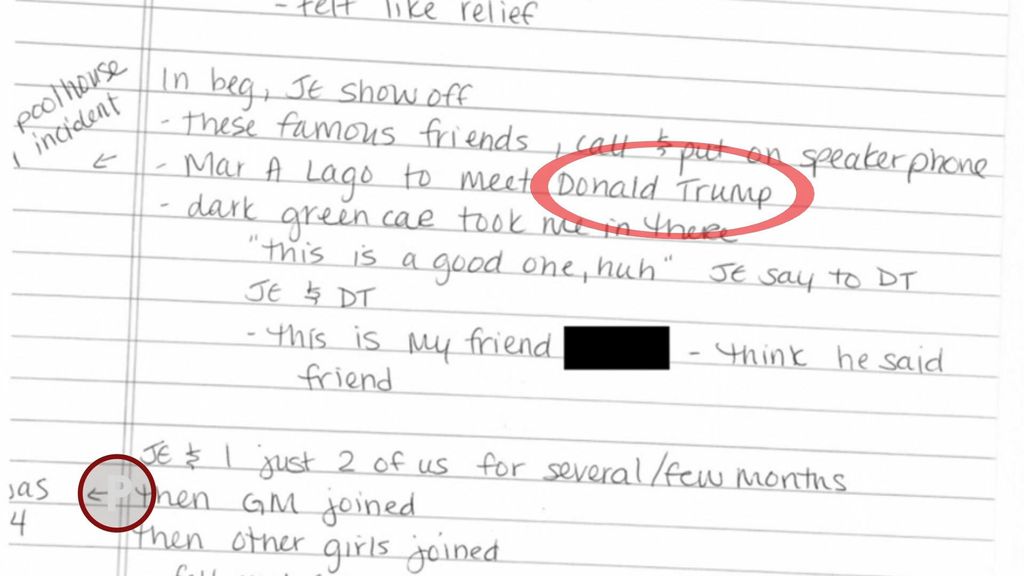 - felt like relief
poolhouse
incident
←
In beg, JE show off
- these famous friends, call & put on speakerphone
- Mar A Lago to meet Donald Trump
- dark green cae took me in there
"this is a good one, huh" JE say to DT
JE & DT
- this is my friend - think he said
friend
JE & I just 2 of us for several/few months
← then GM joined
4
then other girls joined